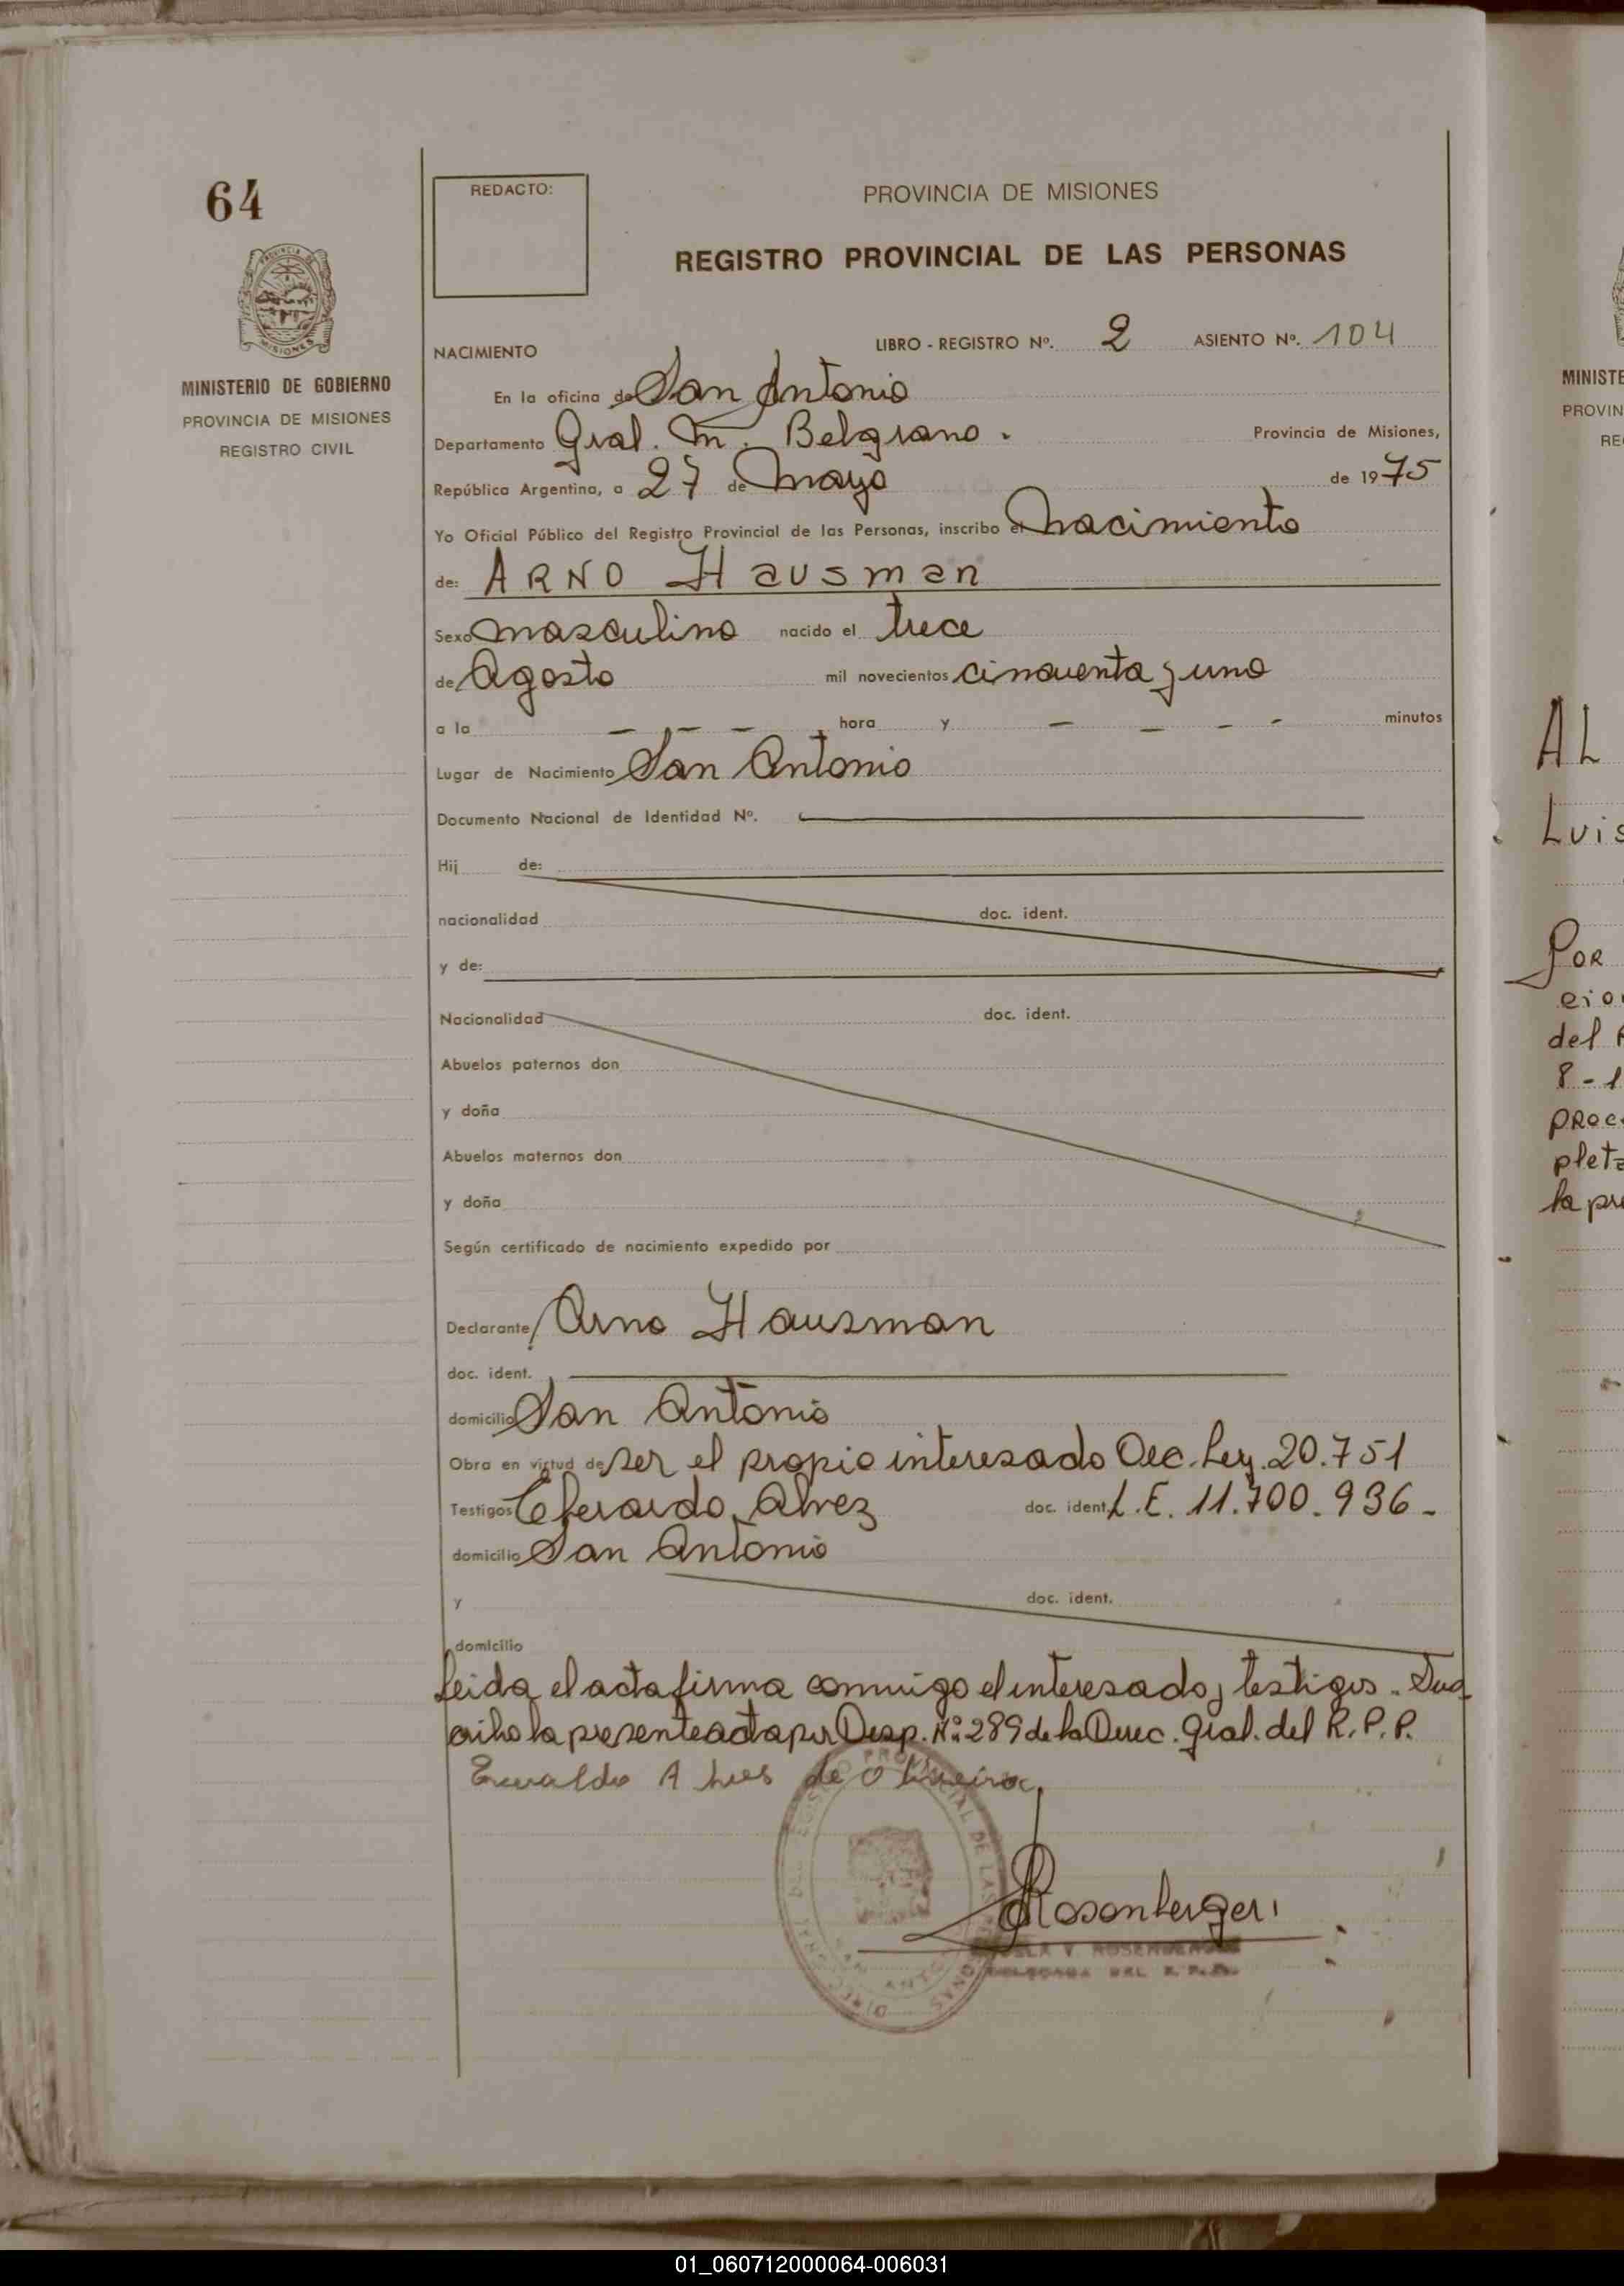 64
REDACTO:
PROVINCIA DE MISIONES
REGISTRO PROVINCIAL DE LAS PERSONAS
MINISTERIO DE GOBIERNO
PROVINCIA DE MISIONES
REGISTRO CIVIL
NACIMIENTO LIBRO - REGISTRO Nº. 2 ASIENTO Nº. 104
En la oficina de San Antonio
Departamento Gral. M. Belgrano. Provincia de Misiones,
República Argentina, a 27 de Mayo de 1975
Yo Oficial Público del Registro Provincial de las Personas, inscribo el Nacimiento
de: ARNO Hausman
Sexo masculino nacido el trece
de Agosto mil novecientos cincuenta y uno
a la - - - hora y - - - - minutos
Lugar de Nacimiento San Antonio
Documento Nacional de Identidad Nº.
Hij de:
nacionalidad doc. ident.
y de:
Nacionalidad doc. ident.
Abuelos paternos don
y doña
Abuelos maternos don
y doña
Según certificado de nacimiento expedido por
Declarante Arno Hausman
doc. ident.
domicilio San Antonio
Obra en virtud de ser el propio interesado Dec. Ley. 20.751
Testigos Alvez doc. ident. L.E. 11.700.936-
domicilio San Antonio
y doc. ident.
domicilio
Leida el acta firma conmigo el interesado y testigos. Sus
cribo la presente acta por Disp. Nº 289 de la Direc. Gral. del R.P.P.
de Oliveira
Rosenberger
DELEGADA DEL R.P.P.
AL
Luis
POR
del
8-1
la
MINISTE
PROVIN
RE
01_060712000064-006031